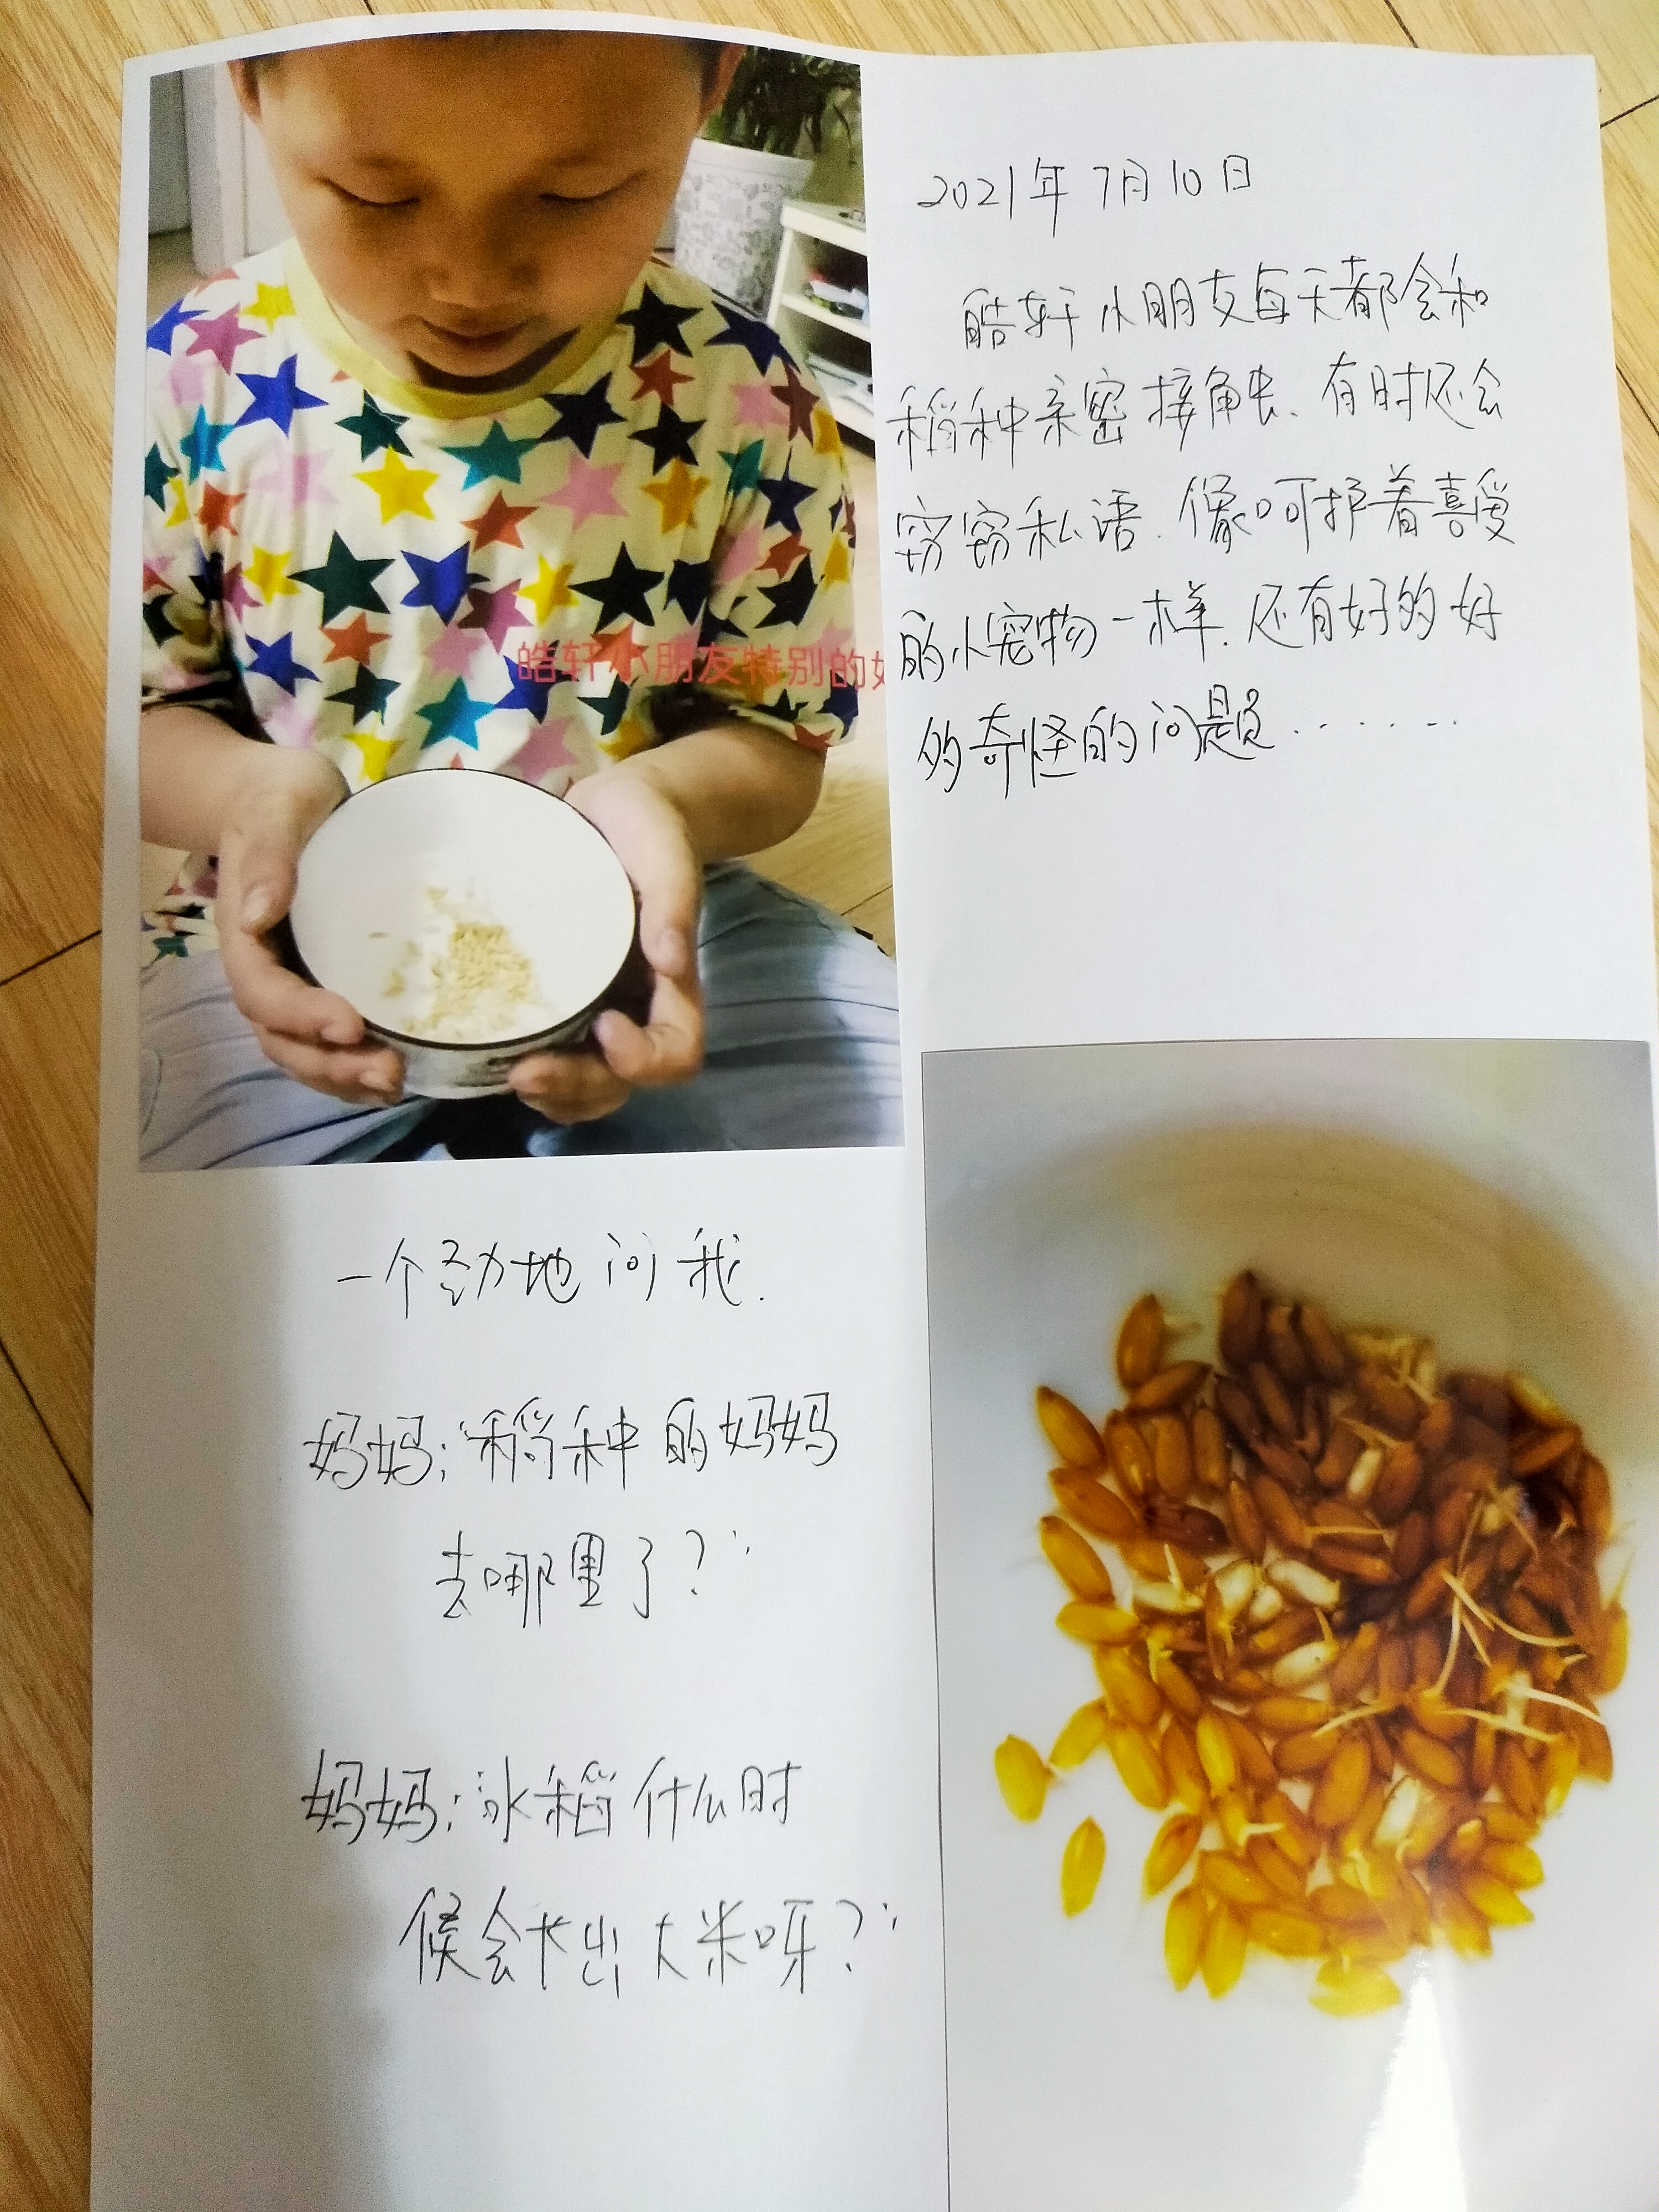 2021年7月10日
皓轩小朋友每天都会和
稻种亲密接触、有时还会
窃窃私语.像呵护着喜爱
的小宠物一样.还有好多好
多奇怪的问题......
皓轩小朋友特别的好
一个劲地问我.
妈妈:"稻种的妈妈
去哪里了?"
妈妈:冰稻什么时
候会长出大米呀?"